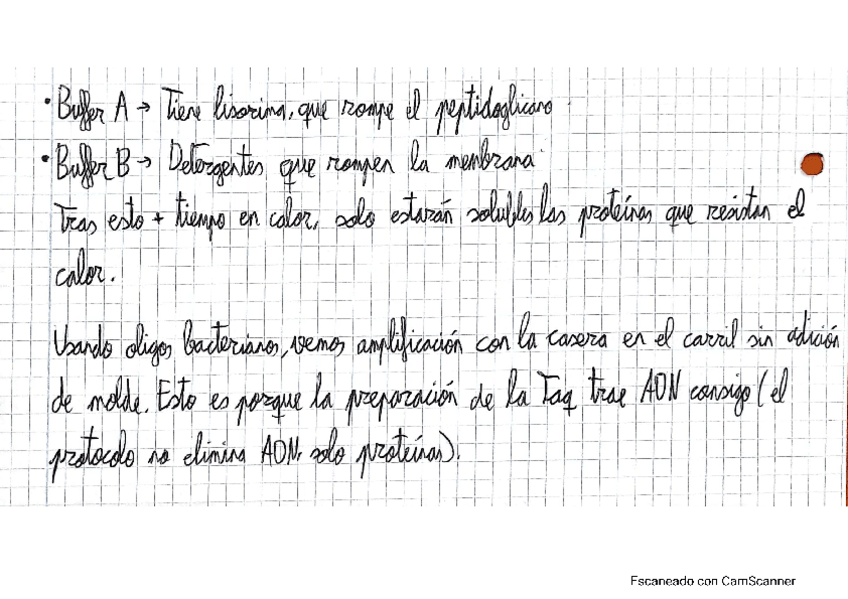 • Buffer A → Tiene lisozima, que rompe el peptidoglicano
• Buffer B → Detergentes que rompen la membrana
Tras esto + tiempo en calor, solo estarán solubles las proteínas que resistan el
calor.
Usando oligos bacterianos, vemos amplificación con la casera en el carril sin adición
de molde. Esto es porque la preparación de la Taq trae ADN consigo (el
protocolo no elimina ADN, solo proteínas).
Escaneado con CamScanner